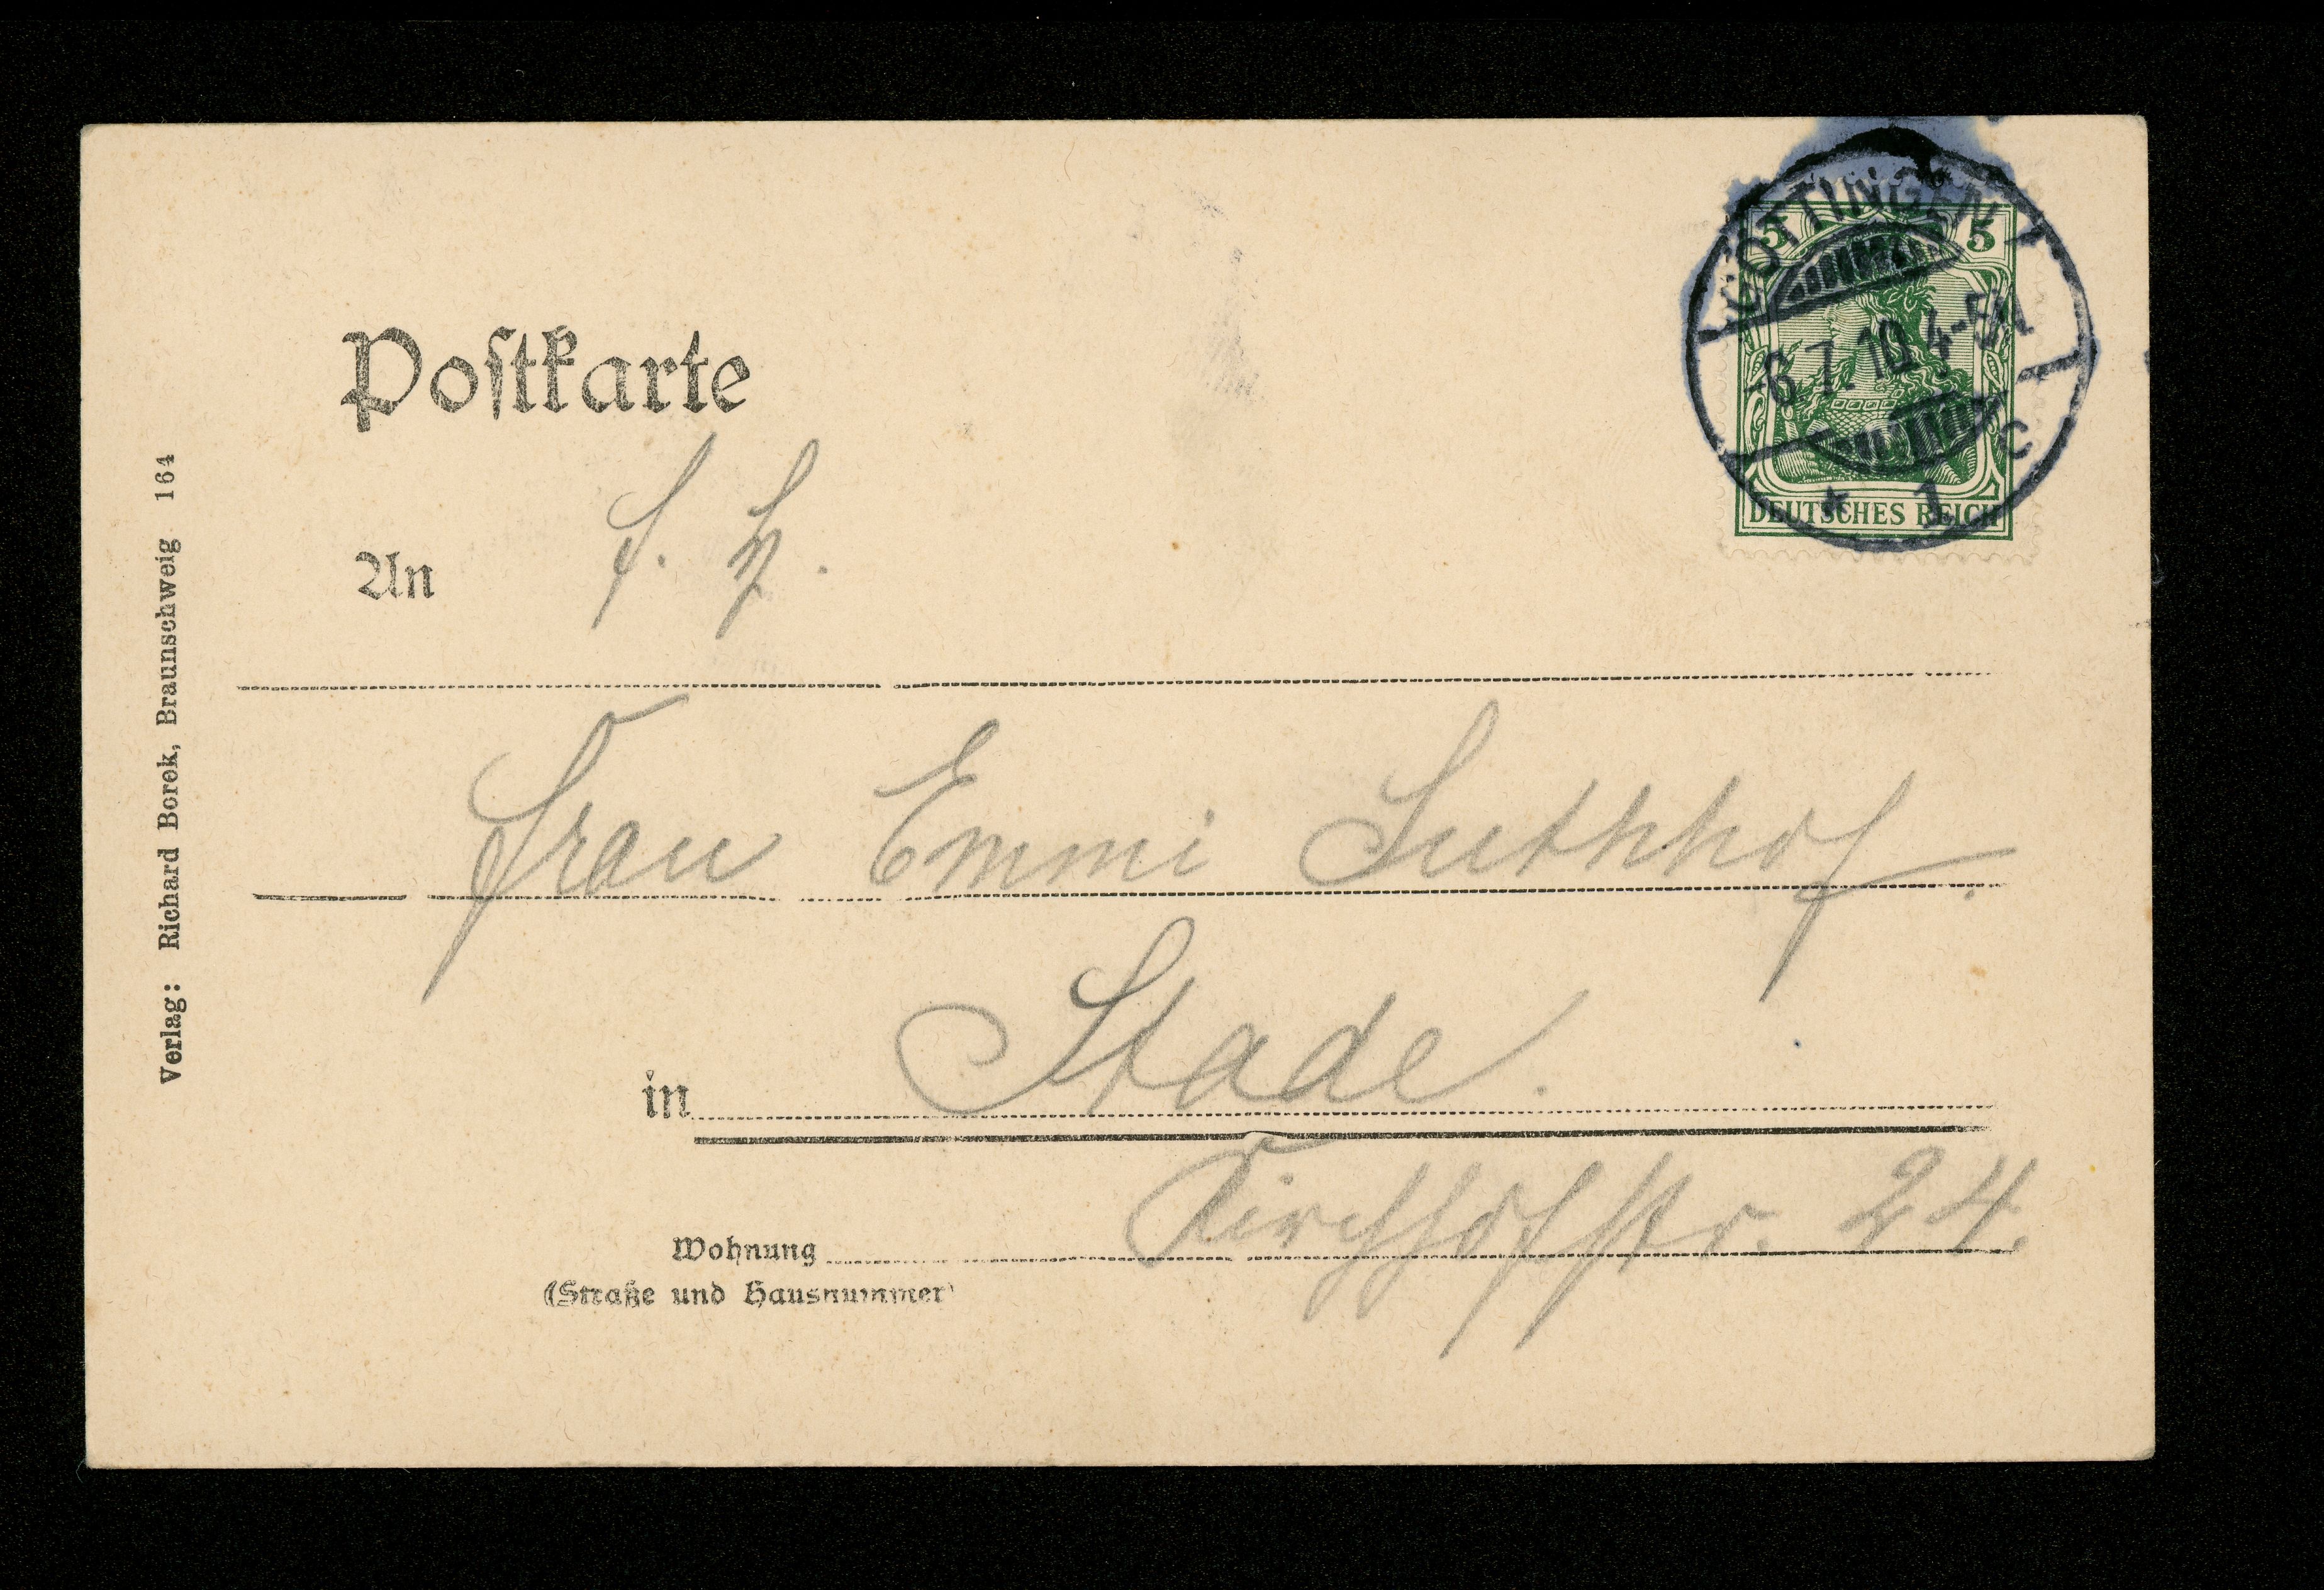 Postkarte
GÖTTINGEN
5 5
-6.7.10.4-5N
c
* 1
DEUTSCHES REICH
An
Frau Emmi Suthhof.
in Stade.
Wohnung Kirchhofstr. 24.
(Straße und Hausnummer)
Verlag: Richard Borek, Braunschweig 164